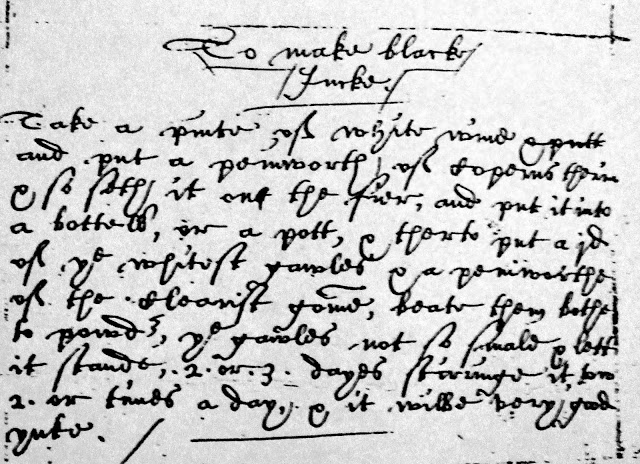 To make blacke
Incke.
Take a pinte of white wine & putt
and put a peniworth of Coperus therin
& so seth it one the fier, and put it into
a bottell, or a pott, & therto put a jd
of ye whitest gawles & a peniworthe
of the clearist gome, beate them bothe
to powdr, ye gawles not so smale & lett
it stande, .2. or 3. dayes stirringe it
2. or times a day, & it wilbe very good
ynke.